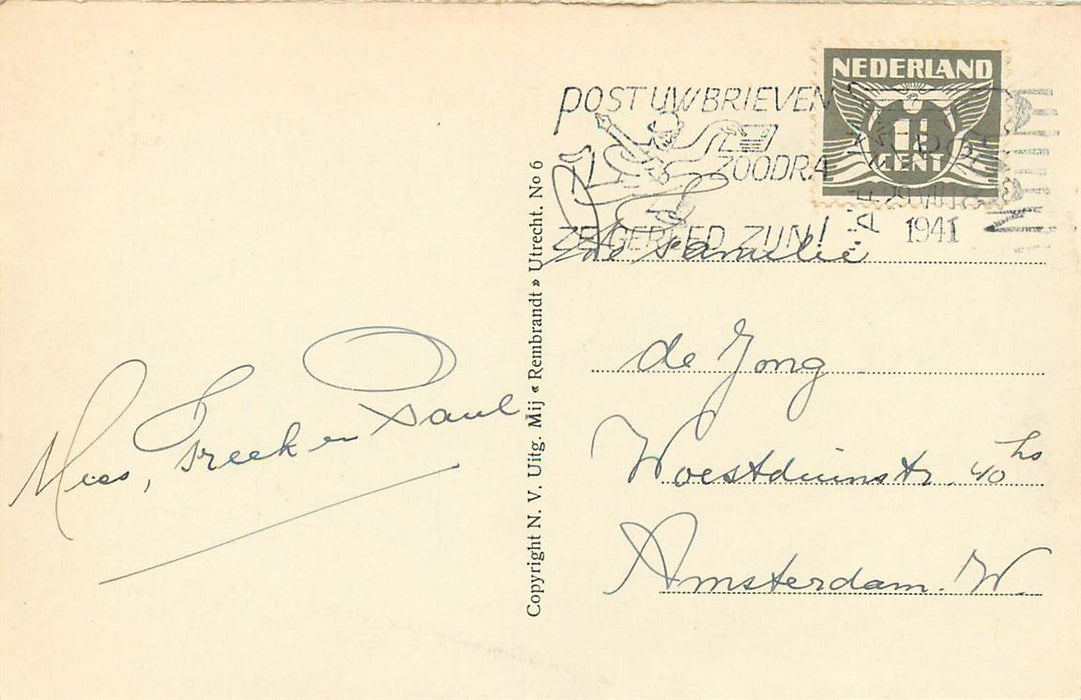 POST UW BRIEVEN
ZOODRA
ZE GEREED ZIJN!
NEDERLAND
1½
CENT
1941
de familie
de Jong
Woestduinstr. 40 hs
Amsterdam. W.
Mies, Freek en Paul
Copyright N. V. Uitg. Mij « Rembrandt » Utrecht. No 6